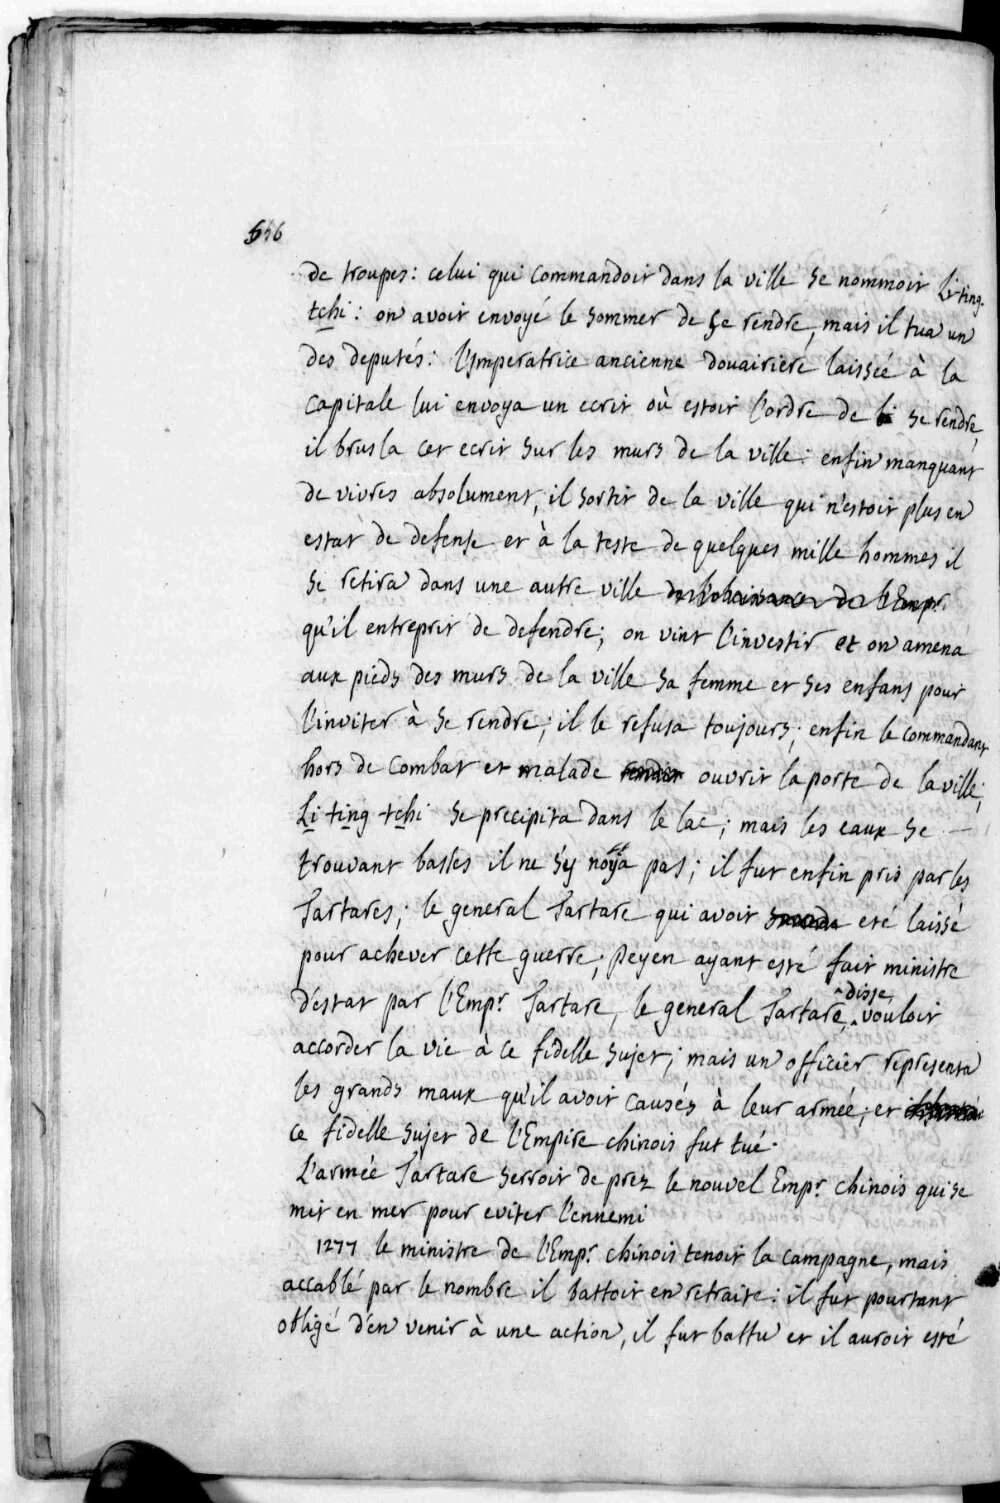 576
de troupes: celui qui commandoit dans la ville se nommoit Li ting-
tchi: on avoit envoyé le sommer de se rendre, mais il tua un
des deputés: l'Imperatrice ancienne douairiere laissée à la
capitale lui envoya un ecrit où estoit l'ordre de se rendre,
il brusla cet ecrit sur les murs de la ville: enfin manquant
de vivres absolument, il sortit de la ville qui n'estoit plus en
estat de defense et à la teste de quelques mille hommes il
se retira dans une autre ville de l'obeissance de l'Empr.
qu'il entreprit de defendre; on vint l'investir et on amena
aux pieds des murs de la ville sa femme et ses enfans pour
l'inviter à se rendre; il le refusa toujours; enfin le commandant
hors de combat et malade ouvrit la porte de la ville;
Li ting tchi se precipita dans le lac; mais les eaux se
trouvant basses il ne s'y noya pas; il fut enfin pris par les
Tartares; le general Tartare qui avoit eté laissé
pour achever cette guerre; Peyen ayant esté fait ministre
d'estat par l'Empr. Tartare, le general Tartare, disse, vouloit
accorder la vie à ce fidelle sujet; mais un officier representa
les grands maux qu'il avoit causés à leur armée; et
ce fidelle sujet de l'Empire chinois fut tué.
L'armée Tartare serroit de prez le nouvel Empr. chinois qui se
mit en mer pour eviter l'ennemi
1277 le ministre de l'Empr. chinois tenoit la campagne, mais
accablé par le nombre il battoit en retraite: il fut pourtant
obligé d'en venir à une action, il fut battu et il auroit esté